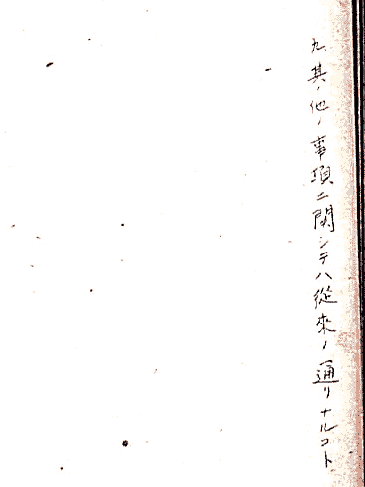 九其ノ他ノ事項ニ関シテハ從來ノ通リナルコト